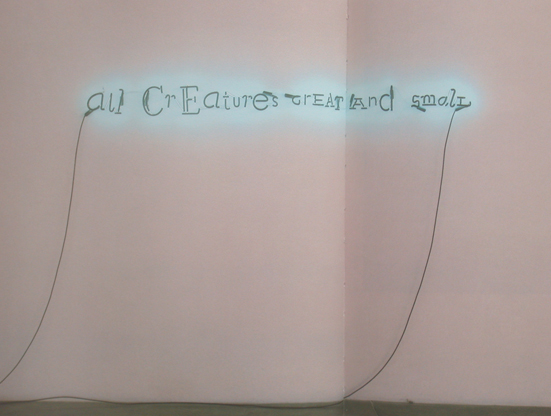 all CrEatures GrEAT And small